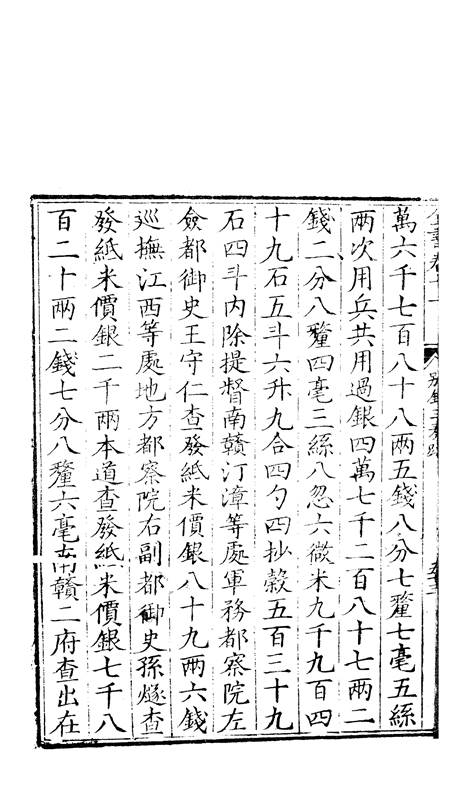 全書卷十一 別錄三奏疏
萬六千七百八十八兩五錢八分七釐七毫五絲
兩次用兵共用過銀四萬七千二百八十七兩二
錢二分八釐四毫三絲八忽六微米九千九百四
十九石五斗六升九合四勺四抄穀五百三十九
石四斗內除提督南贛汀漳等處軍務都察院左
僉都御史王守仁查發紙米價銀八十九兩六錢
巡撫江西等處地方都察院右副都御史孫燧查
發紙米價銀二千兩本道查發紙米價銀七千八
百二十兩二錢七分八釐六毫南贛二府查出在